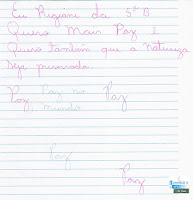 Eu Regiane da 5ª B
Quero Mais Paz e
Quero também que a Natureza
Seja preservada.
Paz, Paz no Paz
mundo
Paz
Paz